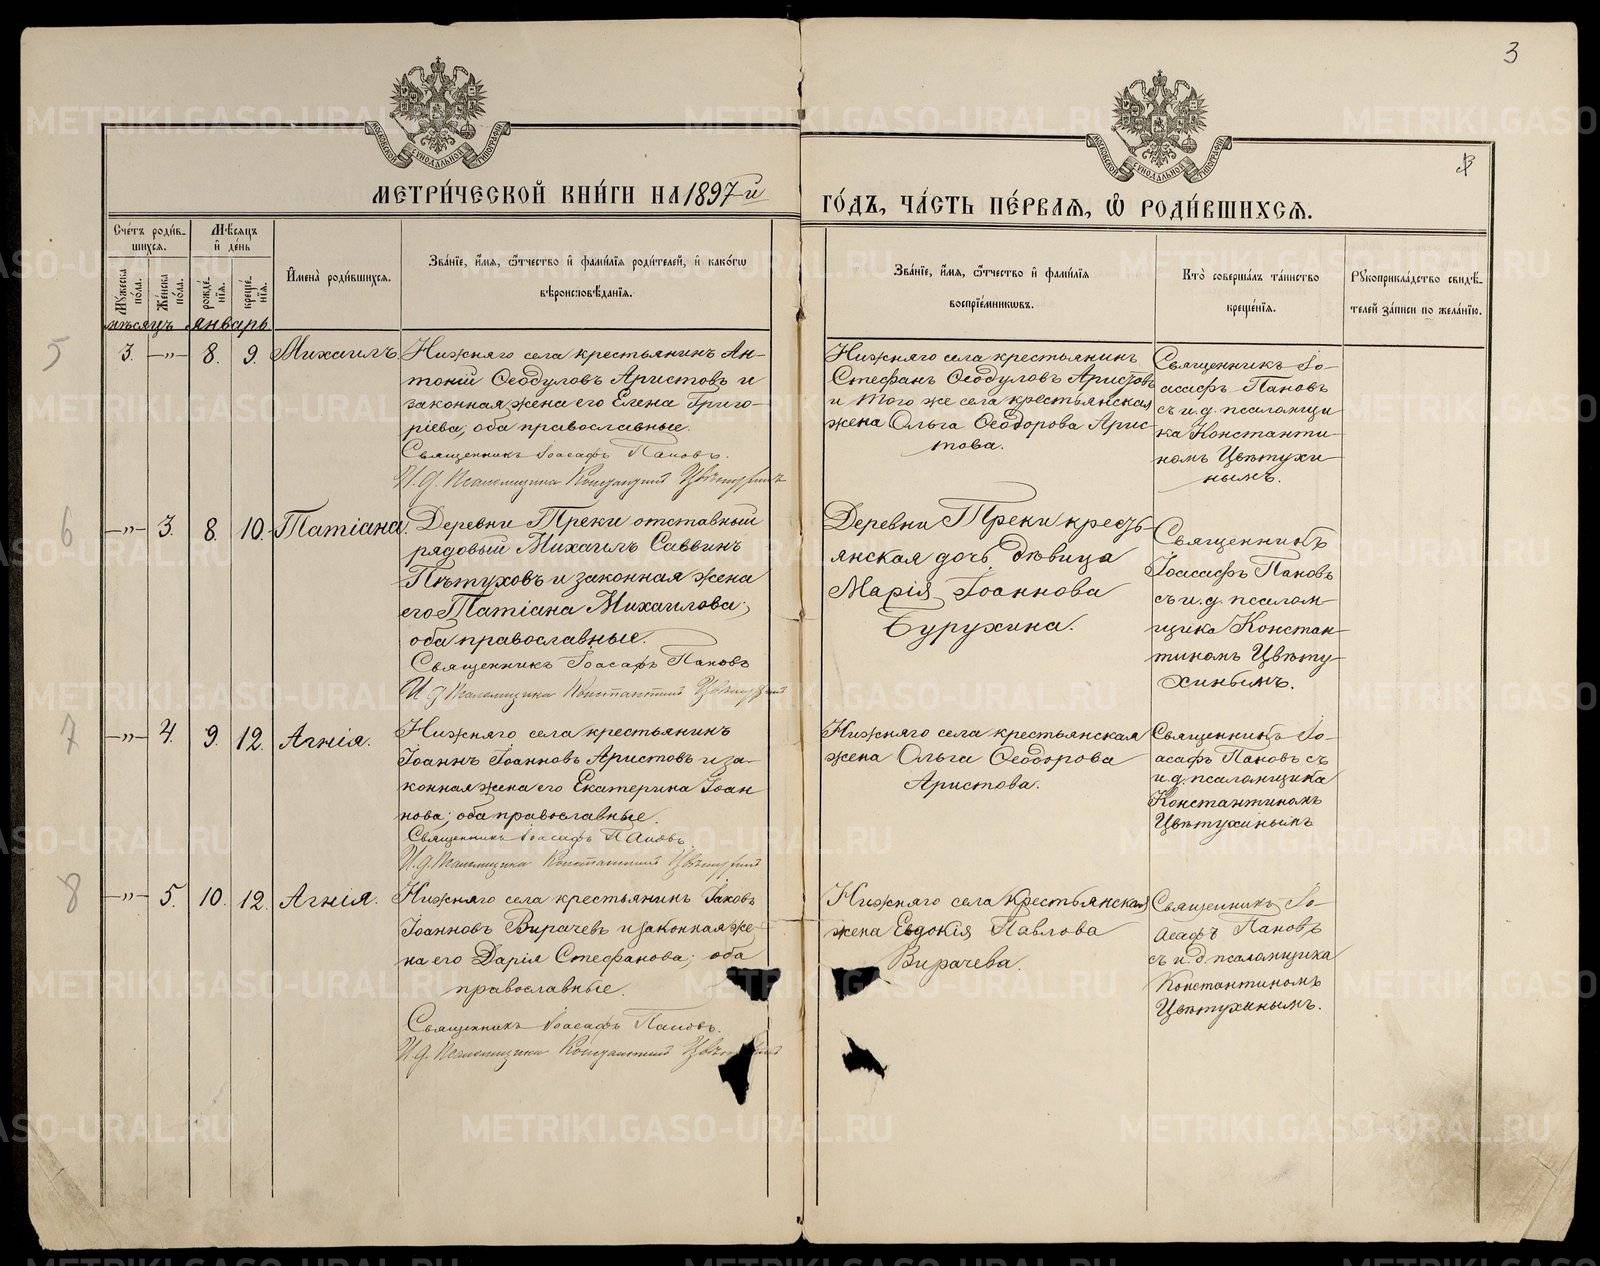 3
МОСКОВСКОЙ СѴНОДАЛЬНОЙ ТИПОГРАФІИ
МОСКОВСКОЙ СѴНОДАЛЬНОЙ ТИПОГРАФІИ
МЕТРИ́ЧЕСКОЙ КНИ́ГИ НА 1897-й
ГО́ДЪ, ЧА́СТЬ ПЕ́РВАЯ, Ѡ҆ РОДИ́ВШИХСЯ.
Сче́тъ роди́в-
шихся.
Мꙋжеска по́ла.
Же́нска по́ла.
Мѣ́сяцъ
и҆ де́нь
рожде́-
нїя.
креще́-
нїя.
И҆мена̀ роди́вшихся.
Зва́нїе, и҆́мя, ѻ҆́тчество и҆ фами́лїя роди́телей, и҆ како́гѡ
вѣроисповѣ́данїя.
Зва́нїе, и҆́мя, ѻ҆́тчество и҆ фами́лїя
воспрїе́мниковъ.
Кто̀ соверша́лъ та́инство
креще́нїя.
Рꙋкоприкла́дство свидѣ́-
телей за́писи по жела́нїю.
мѣсяцъ январь
5
3. —„— 8. 9. Михаилъ.
Нижняго села крестьянинъ Ан-
тоній Ѳеодуловъ Аристовъ и
законная жена его Елена Григо-
ріева; оба православные.
Священникъ Іоасафъ Пановъ.
И. д. Псаломщика Константинъ Цвѣтухинъ
Нижняго села крестьянинъ
Стефанъ Ѳеодуловъ Аристовъ
и того же села крестьянская
жена Ольга Ѳеодорова Арис-
това.
Священникъ Іо-
асафъ Пановъ
съ и. д. псаломщи-
ка Константи-
номъ Цвѣтухи-
нымъ.
6
—„— 3. 8. 10. Татіана.
Деревни Треки отставный
рядовый Михаилъ Саввинъ
Пѣтуховъ и законная жена
его Татіана Михаилова;
оба православные.
Священникъ Іоасафъ Пановъ
И. д. Псаломщика Константинъ Цвѣтухинъ
Деревни Треки кресть-
янская дочь девица
Марія Іоаннова
Бурухина.
Священникъ
Іоасафъ Пановъ
съ и. д. псалом-
щика Констан-
тиномъ Цвѣту-
хинымъ.
7
—„— 4. 9. 12. Агнія.
Нижняго села крестьянинъ
Іоаннъ Іоанновъ Аристовъ и за-
конная жена его Екатерина Іоан
нова; оба православные.
Священникъ Іоасафъ Пановъ
И. д. Псаломщика Константинъ Цвѣтухинъ
Нижняго села крестьянская
жена Ольга Ѳеодорова
Аристова.
Священникъ Іо-
асафъ Пановъ съ
и. д. псаломщика
Константиномъ
Цвѣтухинымъ
8
—„— 5. 10. 12. Агнія.
Нижняго села крестьянинъ Іаковъ
Іоанновъ Вирачевъ и законная же-
на его Дарія Стефанова; оба
православные.
Священникъ Іоасафъ Пановъ.
И. д. Псаломщика Константинъ
Нижняго села крестьянская
жена Евдокія Павлова
Вирачева.
Священникъ Іо-
асафъ Пановъ
съ и. д. псаломщика
Константиномъ
Цвѣтухинымъ.
METRIKI.GASO-URAL.RU